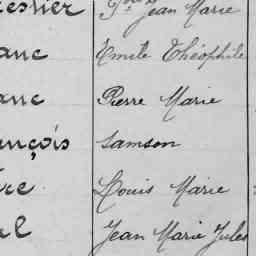 Jean Marie
anc Emile Théophile
anc Pierre Marie
ançois Samson
re Louis Marie
el Jean Marie Jules